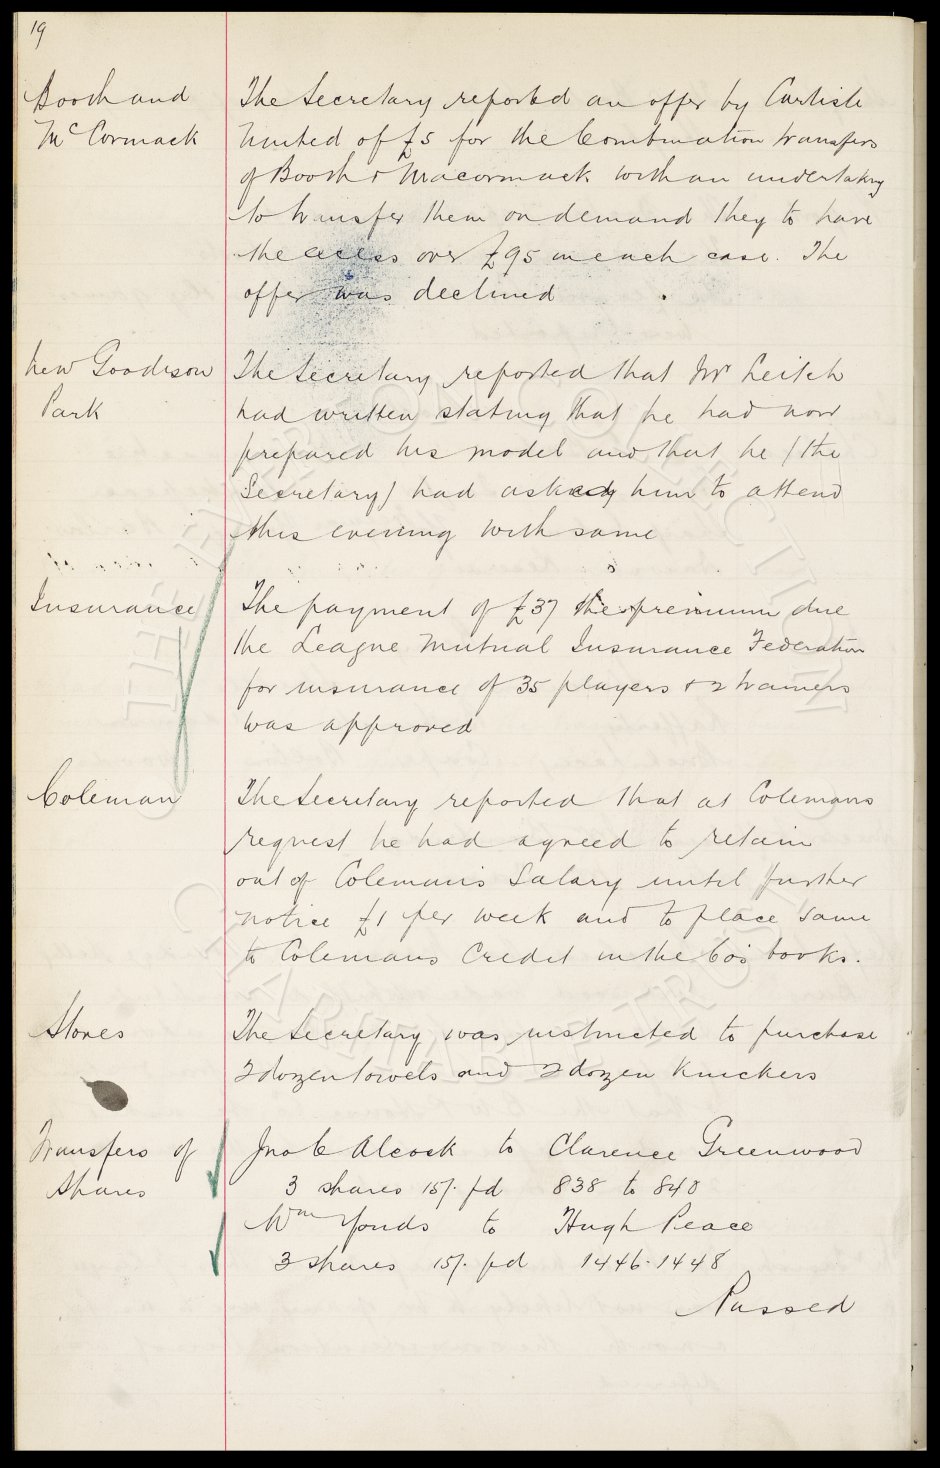 19
Booth and
McCormack
The Secretary reported an offer by Carlisle
United of £5 for the Combination transfers
of Booth & Macormack with an undertaking
to transfer them on demand they to have
the access over £95 in each case. The
offer was declined
New Goodison
Park
The Secretary reported that Mr Leitch
had written stating that he had now
prepared his model and that he (the
Secretary) had asked him to attend
this evening with same
Insurance
The payment of £37 the premium due
the League Mutual Insurance Federation
for insurance of 35 players & 2 trainers
was approved
Coleman
The Secretary reported that at Colemans
request he had agreed to retain
out of Coleman's Salary until further
notice £1 per week and to place same
to Colemans Credit in the Co's books.
Stores
The Secretary was instructed to purchase
2 dozen towels and 2 dozen Knickers
Transfers of
Shares
Jno C Alcock to Clarence Greenwood
3 shares 15/. pd 838 to 840
Wm Yonds to Hugh Peace
3 shares 15/. pd 1446.1448
Passed